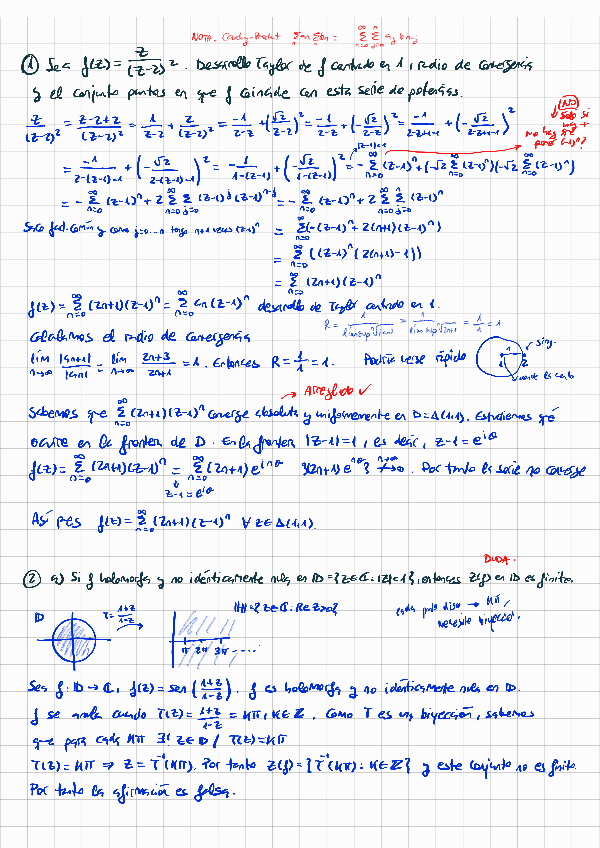 NOTA. Cauchy-Product Σ an Σ bn = Σ_{n=0}^∞ Σ_{j=0}^n aj bn-j
① Sea f(z) = z/(z-2)². Desarrollo Taylor de f centrado en 1, radio de convergencia
y el conjunto puntos en que f coincide con esta serie de potencias.
z/(z-2)² = (z-2+2)/(z-2)² = 1/(z-2) + 2/(z-2)² = -1/(2-z) + (√2/(z-2))² = -1/(2-z) + (-√2/(2-z))² = -1/(2-z+1-1) + (-√2/(2-z+1-1))²
(NO)
Solo si
hay +
No hay que
poner (-1)^n?
= -1/(2-(z-1)-1) + (-√2/(2-(z-1)-1))² = -1/(1-(z-1)) + (-√2/(1-(z-1)))² = -Σ_{n=0}^∞ (z-1)^n + (-√2 Σ_{n=0}^∞ (z-1)^n)(-√2 Σ_{n=0}^∞ (z-1)^n)
|z-1|<1
= -Σ_{n=0}^∞ (z-1)^n + 2 Σ_{n=0}^∞ Σ_{j=0}^n (z-1)^j (z-1)^{n-j} = -Σ_{n=0}^∞ (z-1)^n + 2 Σ_{n=0}^∞ Σ_{j=0}^n (z-1)^n
Saco fact. común y como j=0...n tengo n+1 veces (z-1)^n = Σ_{n=0}^∞ (-(z-1)^n + 2(n+1)(z-1)^n)
= Σ_{n=0}^∞ ((z-1)^n (2(n+1)-1))
= Σ_{n=0}^∞ (2n+1)(z-1)^n
f(z) = Σ_{n=0}^∞ (2n+1)(z-1)^n = Σ_{n=0}^∞ an (z-1)^n desarrollo de Taylor centrado en 1.
R = 1/(lim sup ⁿ√|an|) = 1/(lim sup ⁿ√(2n+1)) = 1/1 = 1
Calculamos el radio de convergencia
lim_{n→∞} |an+1|/|an| = lim_{n→∞} (2n+3)/(2n+1) = 1. Entonces R = 1/1 = 1. Podría verse rápido
sing.
1 1 2
→ Arreglado ✓
Sabemos que Σ_{n=0}^∞ (2n+1)(z-1)^n converge absoluta y uniformemente en D=Δ(1,1). Estudiemos qué
ocurre en la frontera de D. En la frontera |z-1|=1, es decir, z-1 = e^{iθ}
f(z) = Σ_{n=0}^∞ (2n+1)(z-1)^n = Σ_{n=0}^∞ (2n+1) e^{inθ} {(2n+1) e^{inθ}} ↛ 0 (n→∞). Por tanto la serie no converge
z-1 = e^{iθ}
Así pues f(z) = Σ_{n=0}^∞ (2n+1)(z-1)^n ∀ z ∈ Δ(1,1).
DUDA.
② a) Si f holomorfa y no idénticamente nula en 𝔻 = {z ∈ ℂ : |z| < 1}, entonces Z(f) en 𝔻 es finito.
𝔻 T = (1+z)/(1-z) ℍ = {z ∈ ℂ : Re z > 0}
π 2π 3π .....
cada punto disco → kπ,
necesito biyección.
Sea f : 𝔻 → ℂ, f(z) = sen((1+z)/(1-z)). f es holomorfa y no idénticamente nula en 𝔻.
f se anula cuando T(z) = (1+z)/(1-z) = kπ, k ∈ ℤ. Como T es una biyección, sabemos
que para cada kπ ∃! z ∈ 𝔻 / T(z) = kπ
T(z) = kπ ⇒ z = T⁻¹(kπ). Por tanto Z(f) = {T⁻¹(kπ) : k ∈ ℤ} y este conjunto no es finito.
Por tanto la afirmación es falsa.